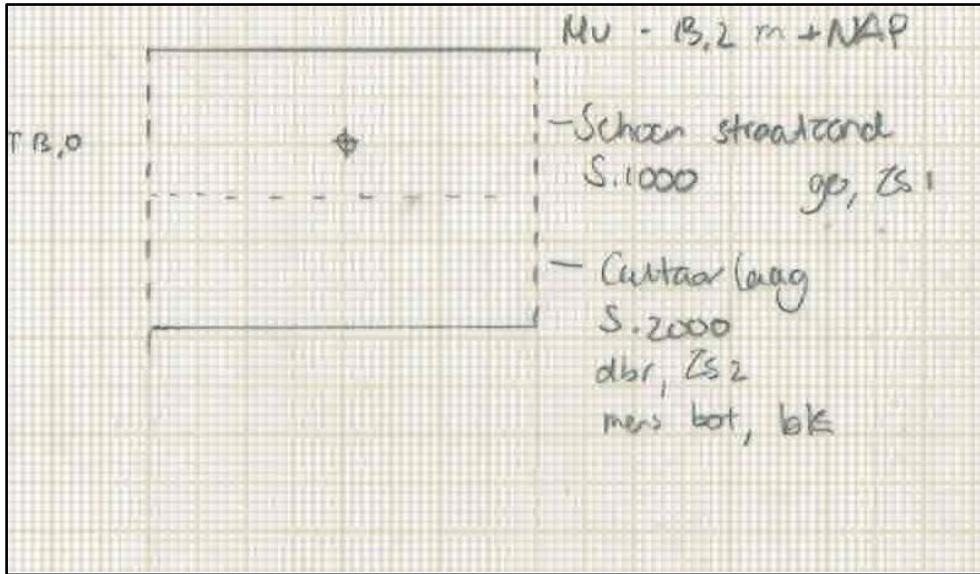 Mv - 13,2 m + NAP
13,0
- Schoon straatzand
S.1000 ge, ZS1
- Cultuur laag
S.2000
dbr, ZS2
mens bot, bk